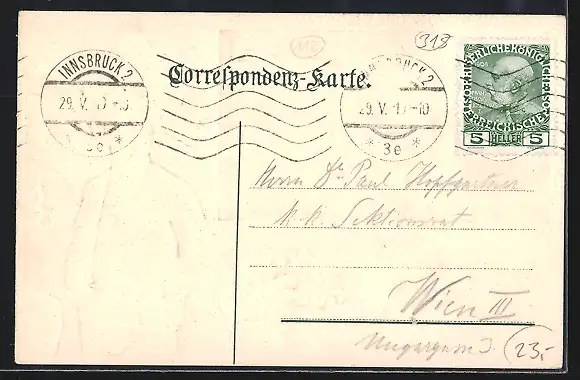 318
INNSBRUCK 2
29.V.10-10
* 3e *
Correspondenz-Karte.
INNSBRUCK 2
29.V.10-10
* 3e *
KAISERLICHE KÖNIGLICHE ÖSTERREICHISCHE POST
5 HELLER 5
Herrn Dr Paul Hopfgartner
k.k. Sektionsrat
Wien III
Ungargasse 3
23,-